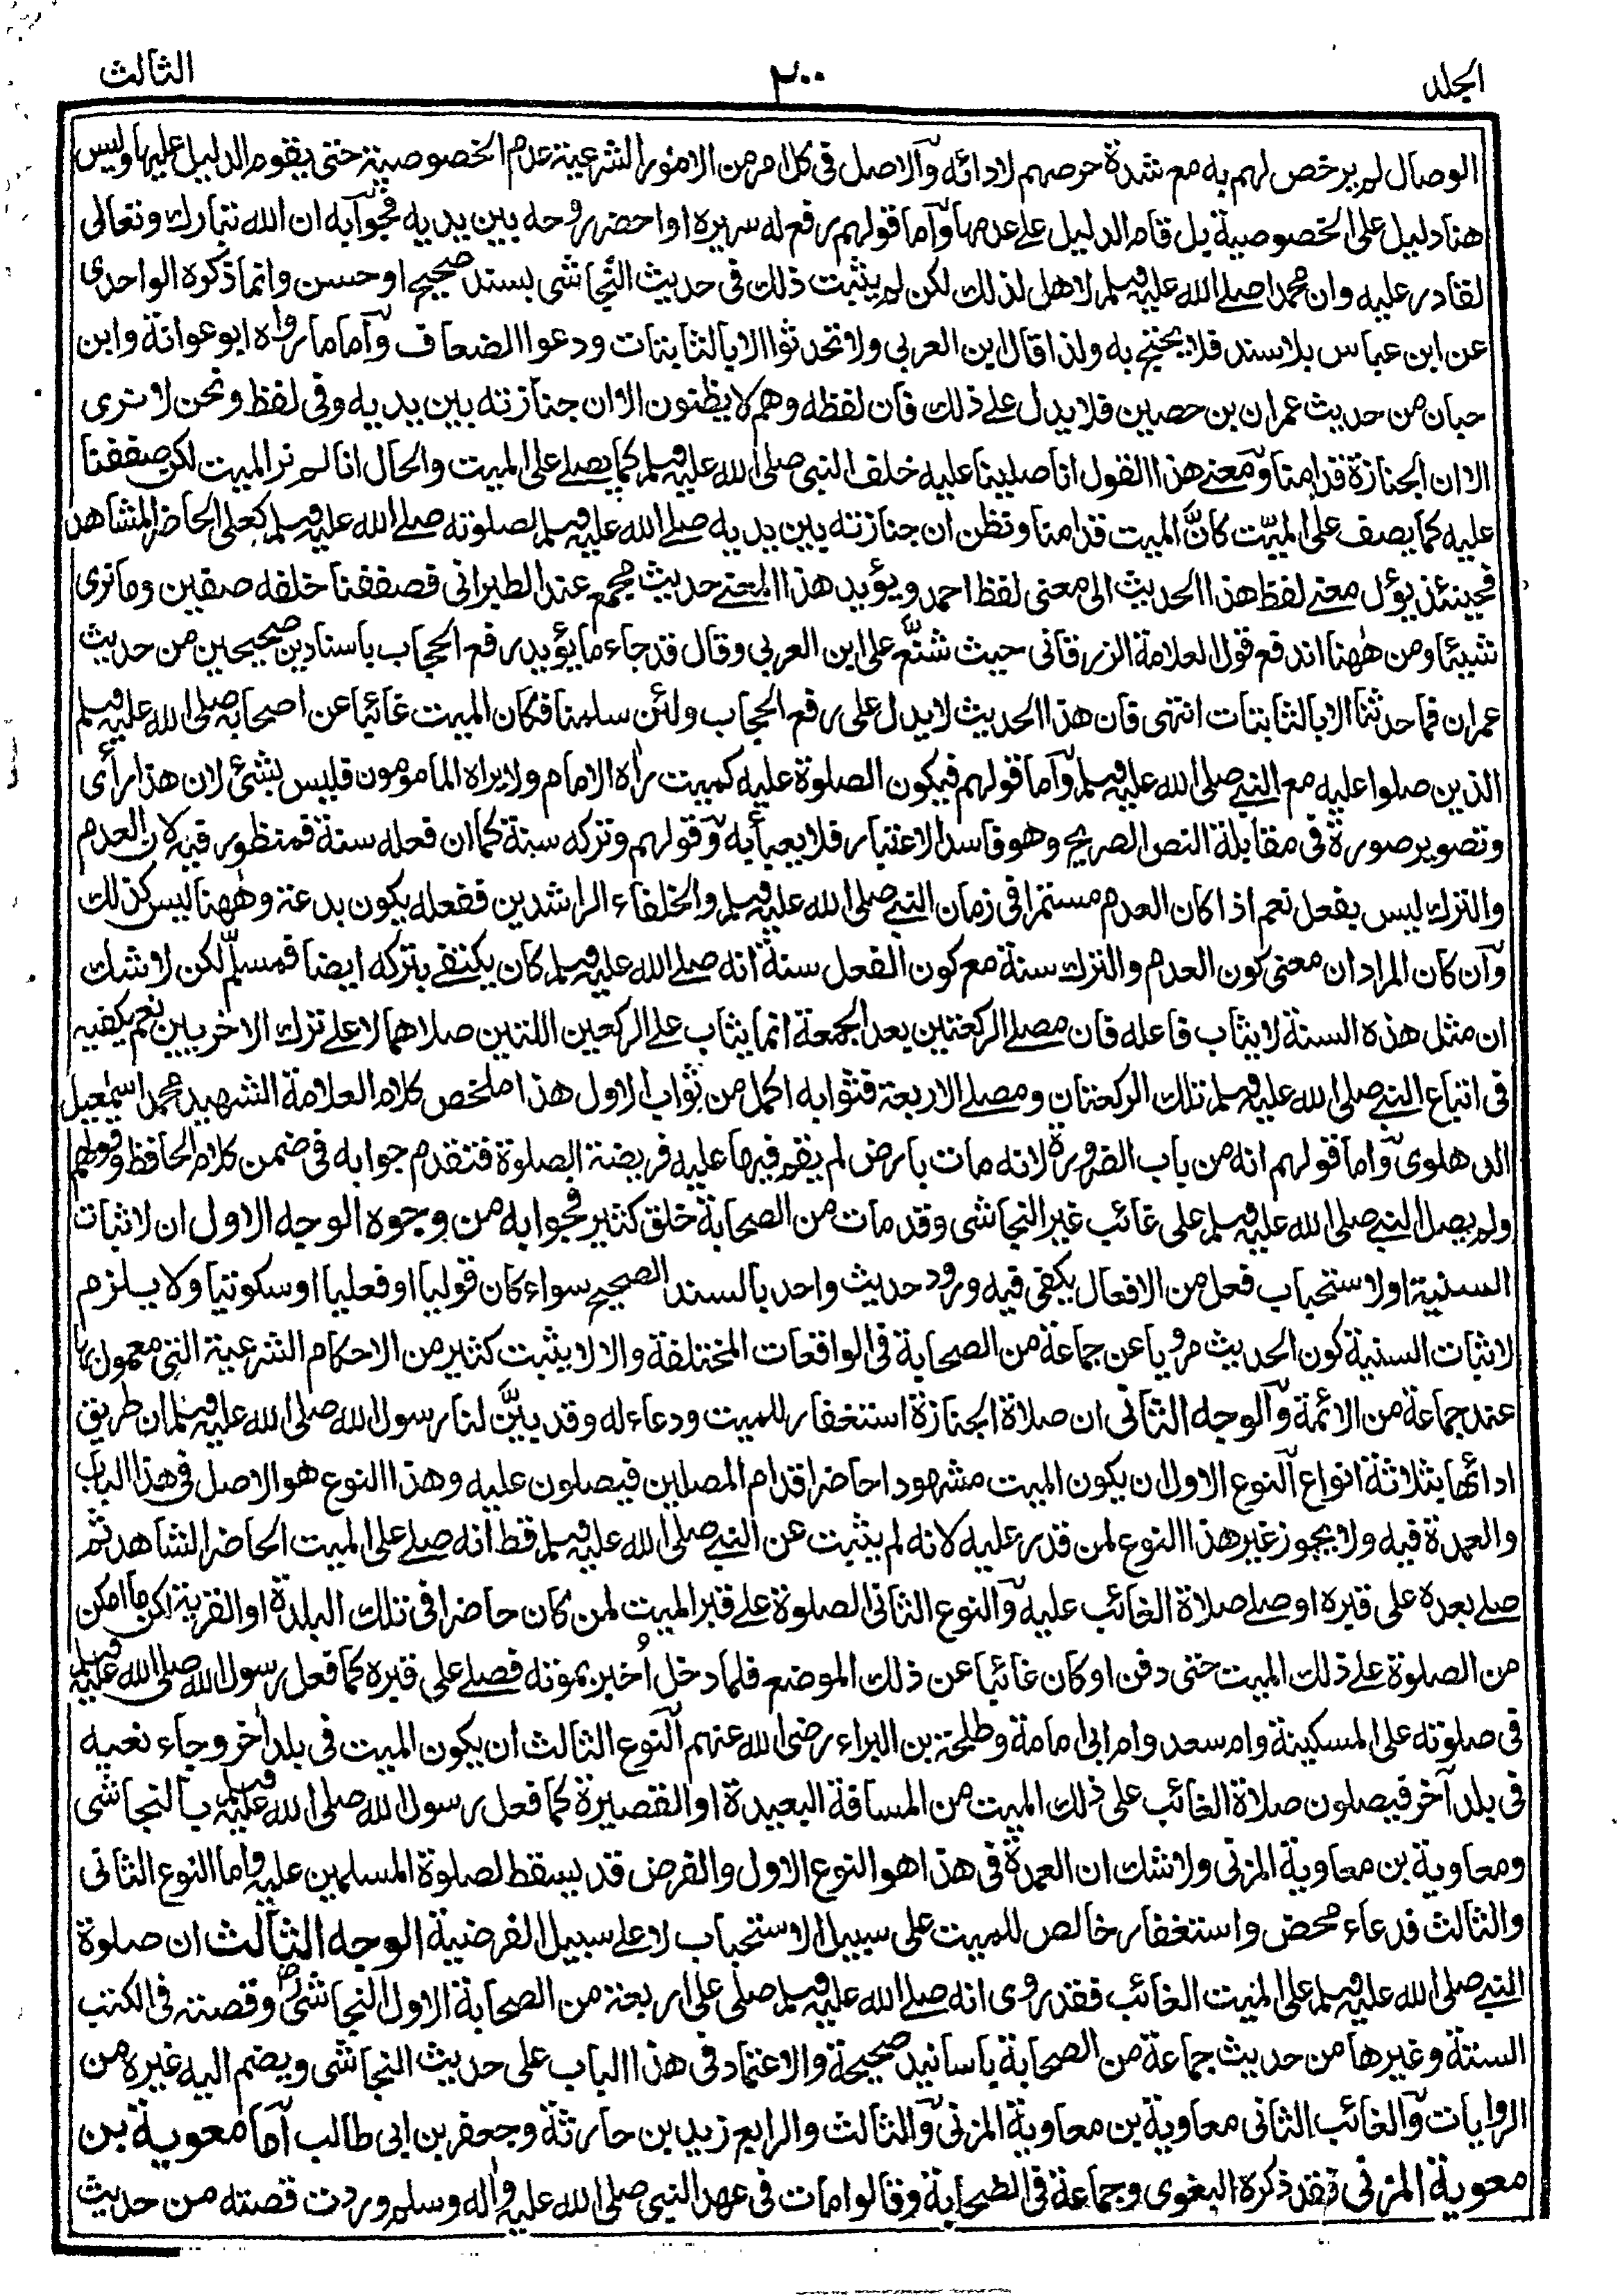 الجلد
٢٠٠
الثالث
الوصال لم يرخص لهم به مع شدة حرصهم لادائه وآلاصل فى كل امر من الامور الشرعية عدم الخصوصية حتى يقوم الدليل عليها وليس
هنا دليل على الخصوصية بل قام الدليل على عدمها وآما قولهم رفع له سريره او احضر روحه بين يديه فجوآبه ان الله تبارك وتعالى
لقادر عليه وان محمدا صلے الله عليه وسلم لاهل لذلك لكن لم يثبت ذلك فى حديث النجاشى بسند صحيح او حسن وانما ذكره الواحدى
عن ابن عباس بلا سند فلا يحتج به ولذا قال ابن العربي ولا تحدثوا الا بالثابتات ودعوا الضعاف وآما ما رواه ابو عوانة وابن
حبان من حديث عمران بن حصين فلا يدل على ذلك فان لفظه وهم لا يظنون الا ان جنازته بين يديه وفى لفظ ونحن لا نرى
الا ان الجنازة قدامنا ومعنے هذا القول انا صلينا عليه خلف النبى صلى الله عليه وسلم كما يصلے على الميت والحال انا لم نر الميت لكن صففنا
عليه كما يصف على الميّت كانَّ الميت قدامنا ونظن ان جنازته بين يديه صلے الله عليه وسلم لصلوته صلے الله عليه وسلم كعلى الحاضر المشاهد
فحينئذ يؤل معنے لفظ هذا الحديث الى معنى لفظ احمد ويؤيد هذا المعنے حديث مجمع عند الطبرانى فصففنا خلفه صفين وما نرى
شيئا ومن هٰهنا اندفع قول العلامة الزرقانى حيث شنَّع على ابن العربي وقال قد جاء ما يؤيد رفع الحجاب باسنادين صحيحين من حديث
عمران فما حدثنا الا بالثابتات انتهى فان هذا الحديث لا يدل على رفع الحجاب ولئن سلمنا فكان الميت غائبا عن اصحابه صلى الله عليه وسلم
الذين صلوا عليه مع النبے صلى الله عليه وسلم وآما قولهم فيكون الصلوة عليه كميت رأه الامام ولا يراه المامومون فليس بشئ لان هذا رأى
وتصوير صورة فى مقابلة النص الصريح وهو فاسد الاعتبار فلا يعبأ به وقولهم وتركه سنة كما ان فعله سنة فمنظور فيه لان العدم
والترك ليس بفعل نعم اذا كان العدم مستمرا فى زمان النبے صلى الله عليه وسلم والخلفاء الراشدين ففعله يكون بدعة وهٰهنا ليس كذلك
وآن كان المراد ان معنى كون العدم والترك سنة مع كون الفعل سنة انه صلے الله عليه وسلم كان يكتفے بتركه ايضا فمسلّم لكن لا شك
ان مثل هذه السنة لا يثاب فاعله فان مصلے الركعتين بعد الجمعة انما يثاب على الركعتين اللتين صلاهما لا على ترك الاخريين نعم يكفيه
فى اتباع النبے صلى الله عليه وسلم تلك الركعتان ومصلے الاربعة فثوابه اكمل من ثواب الاول هذا ملخص كلام العلامة الشهيد محمد اسمٰعيل
الدهلوى وآما قولهم انه من باب الضرورة لانه مات بارض لم يقم فيها عليه فريضة الصلوة فتقدم جوابه فى ضمن كلام الحافظ وقولهم
ولم يصل النبے صلى الله عليه وسلم على غائب غير النجاشى وقد مات من الصحابة خلق كثير فجوابه من وجوه الوجه الاول ان لاثبات
السنية او لاستحباب فعل من الافعال يكفى فيه ورود حديث واحد بالسند الصحيح سواء كان قوليا او فعليا او سكوتيا ولا يلزم
لاثبات السنية كون الحديث مرويا عن جماعة من الصحابة فى الواقعات المختلفة والا لا يثبت كثير من الاحكام الشرعية التى معمول بها
عند جماعة من الائمة وآلوجه الثانى ان صلاة الجنازة استغفار للميت ودعاء له وقد بيَّن لنا رسول الله صلى الله عليه وسلم ان طريق
ادائها بثلاثة انواع آلنوع الاول ان يكون الميت مشهودا حاضرا قدام المصلين فيصلون عليه وهذا النوع هو الاصل فى هذا الباب
والعمدة فيه ولا يجوز غير هذا النوع لمن قدر عليه لانه لم يثبت عن النبے صلى الله عليه وسلم قط انه صلے على الميت الحاضر الشاهد ثم
صلے بعده على قبره او صلے صلاة الغائب عليه وآلنوع الثانى الصلوة على قبر الميت لمن كان حاضرا فى تلك البلدة او القرية لكن ما امكن
من الصلوة على ذلك الميت حتى دفن او كان غائبا عن ذلك الموضع فلما دخل اُخبر بموته فصلے على قبره كما فعل رسول الله صلى الله عليه وسلم
فى صلوته على المسكينة وام سعد وام ابى امامة وطلحة بن البراء رضى الله عنهم آلنوع الثالث ان يكون الميت فى بلد اٰخر وجاء نعيه
فى بلد آخر فيصلون صلاة الغائب على ذلك الميت من المسافة البعيدة او القصيرة كما فعل رسول الله صلى الله عليه وسلم بالنجاشى
ومعاوية بن معاوية المزنى ولا شك ان العمدة فى هذا هو النوع الاول والفرض قد يسقط لصلوة المسلمين عليه واما النوع الثانى
والثالث فدعاء محض واستغفار خالص للميت على سبيل الاستحباب لا على سبيل الفرضية الوجه الثالث ان صلوة
النبے صلى الله عليه وسلم على الميت الغائب فقد روى انه صلے الله عليه وسلم صلى على اربعة من الصحابة الاول النجاشىؓ وقصته فى الكتب
الستة وغيرها من حديث جماعة من الصحابة باسانيد صحيحة والاعتماد فى هذا الباب على حديث النجاشى ويضم اليه غيره من
الروايات وآلغائب الثانى معاوية بن معاوية المزنى وآلثالث والرابع زيد بن حارثة وجعفر بن ابى طالب آما معوية بن
معوية المزنى فقد ذكره البغوى وجماعة فى الصحابة وقالوا مات فى عهد النبى صلى الله عليه واٰله وسلم وردت قصته من حديث